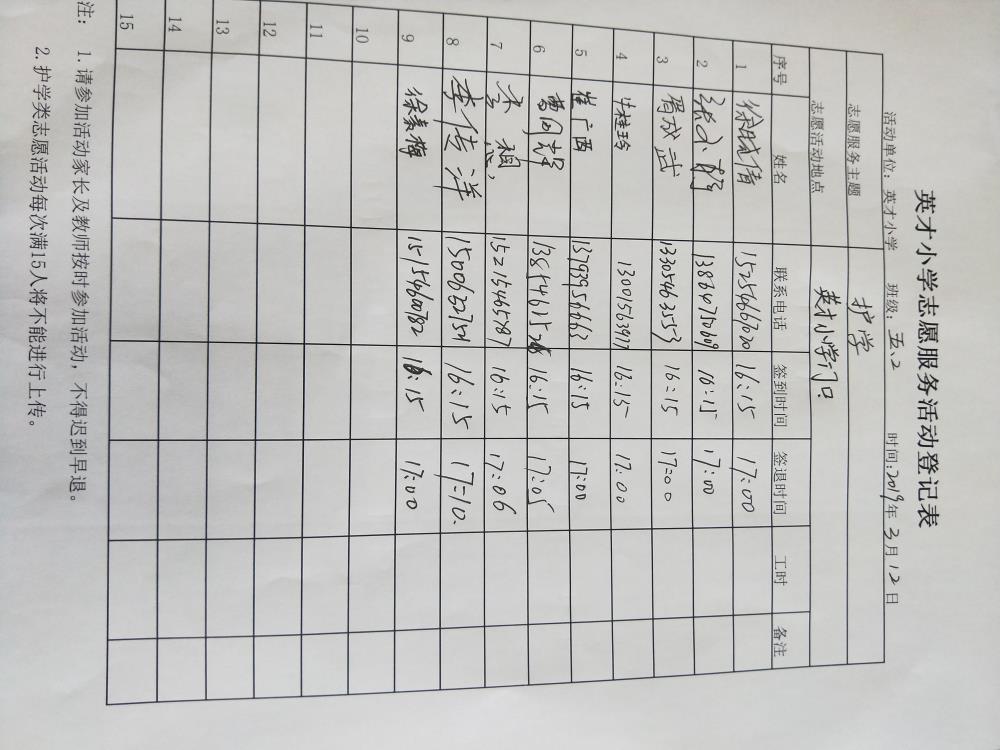 英才小学志愿服务活动登记表
活动单位：英才小学 班级：五、2 时间：2019年3月12日
志愿服务主题 护学
志愿活动地点 英才小学门口
序号 姓名 联系电话 签到时间 签退时间 工时 备注
1 15254667020 16:15 17:00
2 16:15 17:00
3 胥成武 13305463553 16:15 17:00
4 牛桂玲 13001563917 16:15 17:00
5 崔广西 13793956663 16:15 17:00
6 16:15 17:05
7 15215465787 16:15 17:06
8 李传洋 15006322754 16:15 17:10
9 徐素梅 15154660782 16:15 17:00
10
11
12
13
14
15
注： 1. 请参加活动家长及教师按时参加活动，不得迟到早退。
2. 护学类志愿活动每次满15人将不能进行上传。